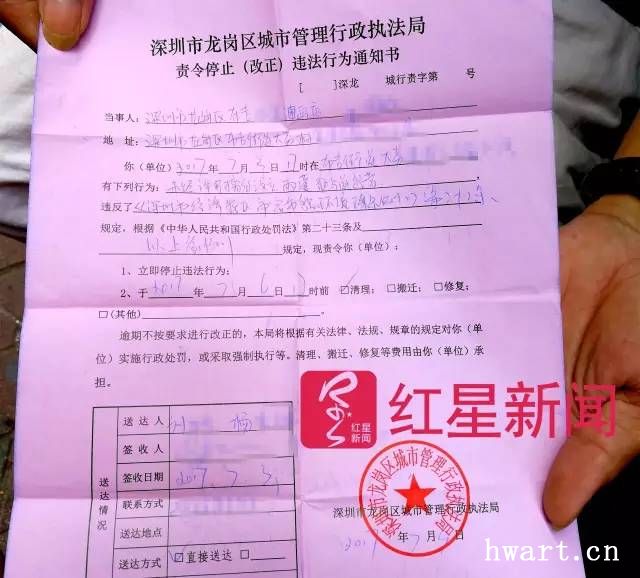 深圳市龙岗区城市管理行政执法局
责令停止（改正）违法行为通知书
[ ]深龙 城行责字第 号
当事人：深圳市龙岗区布吉
地 址：深圳市龙岗区布吉街道大芬村
你（单位）2017年7月3日时在布吉街道大芬
有下列行为：未经许可擅自
违反了《深圳市经济特区市容和环境卫生
规定，根据《中华人民共和国行政处罚法》第二十三条及
以上条例 规定，现责令你（单位）：
1、立即停止违法行为；
2、于2017年7月6日时前 ☑清理；□搬迁；□修复；
□(其他)
逾期不按要求进行改正的，本局将根据有关法律、法规、规章的规定对你（单
位）实施行政处罚，或采取强制执行等。清理、搬迁、修复等费用由你（单位）承
担。
送达情况
送 达 人
签 收 人
签收日期 2017.7.3
联系方式
送达地点
送达方式 ☑直接送达 □
红星新闻
红星新闻
深圳市龙岗区城市管理行政执法局
深圳市龙岗区城市管理行政执法局
2017年7月 日
hwart.cn